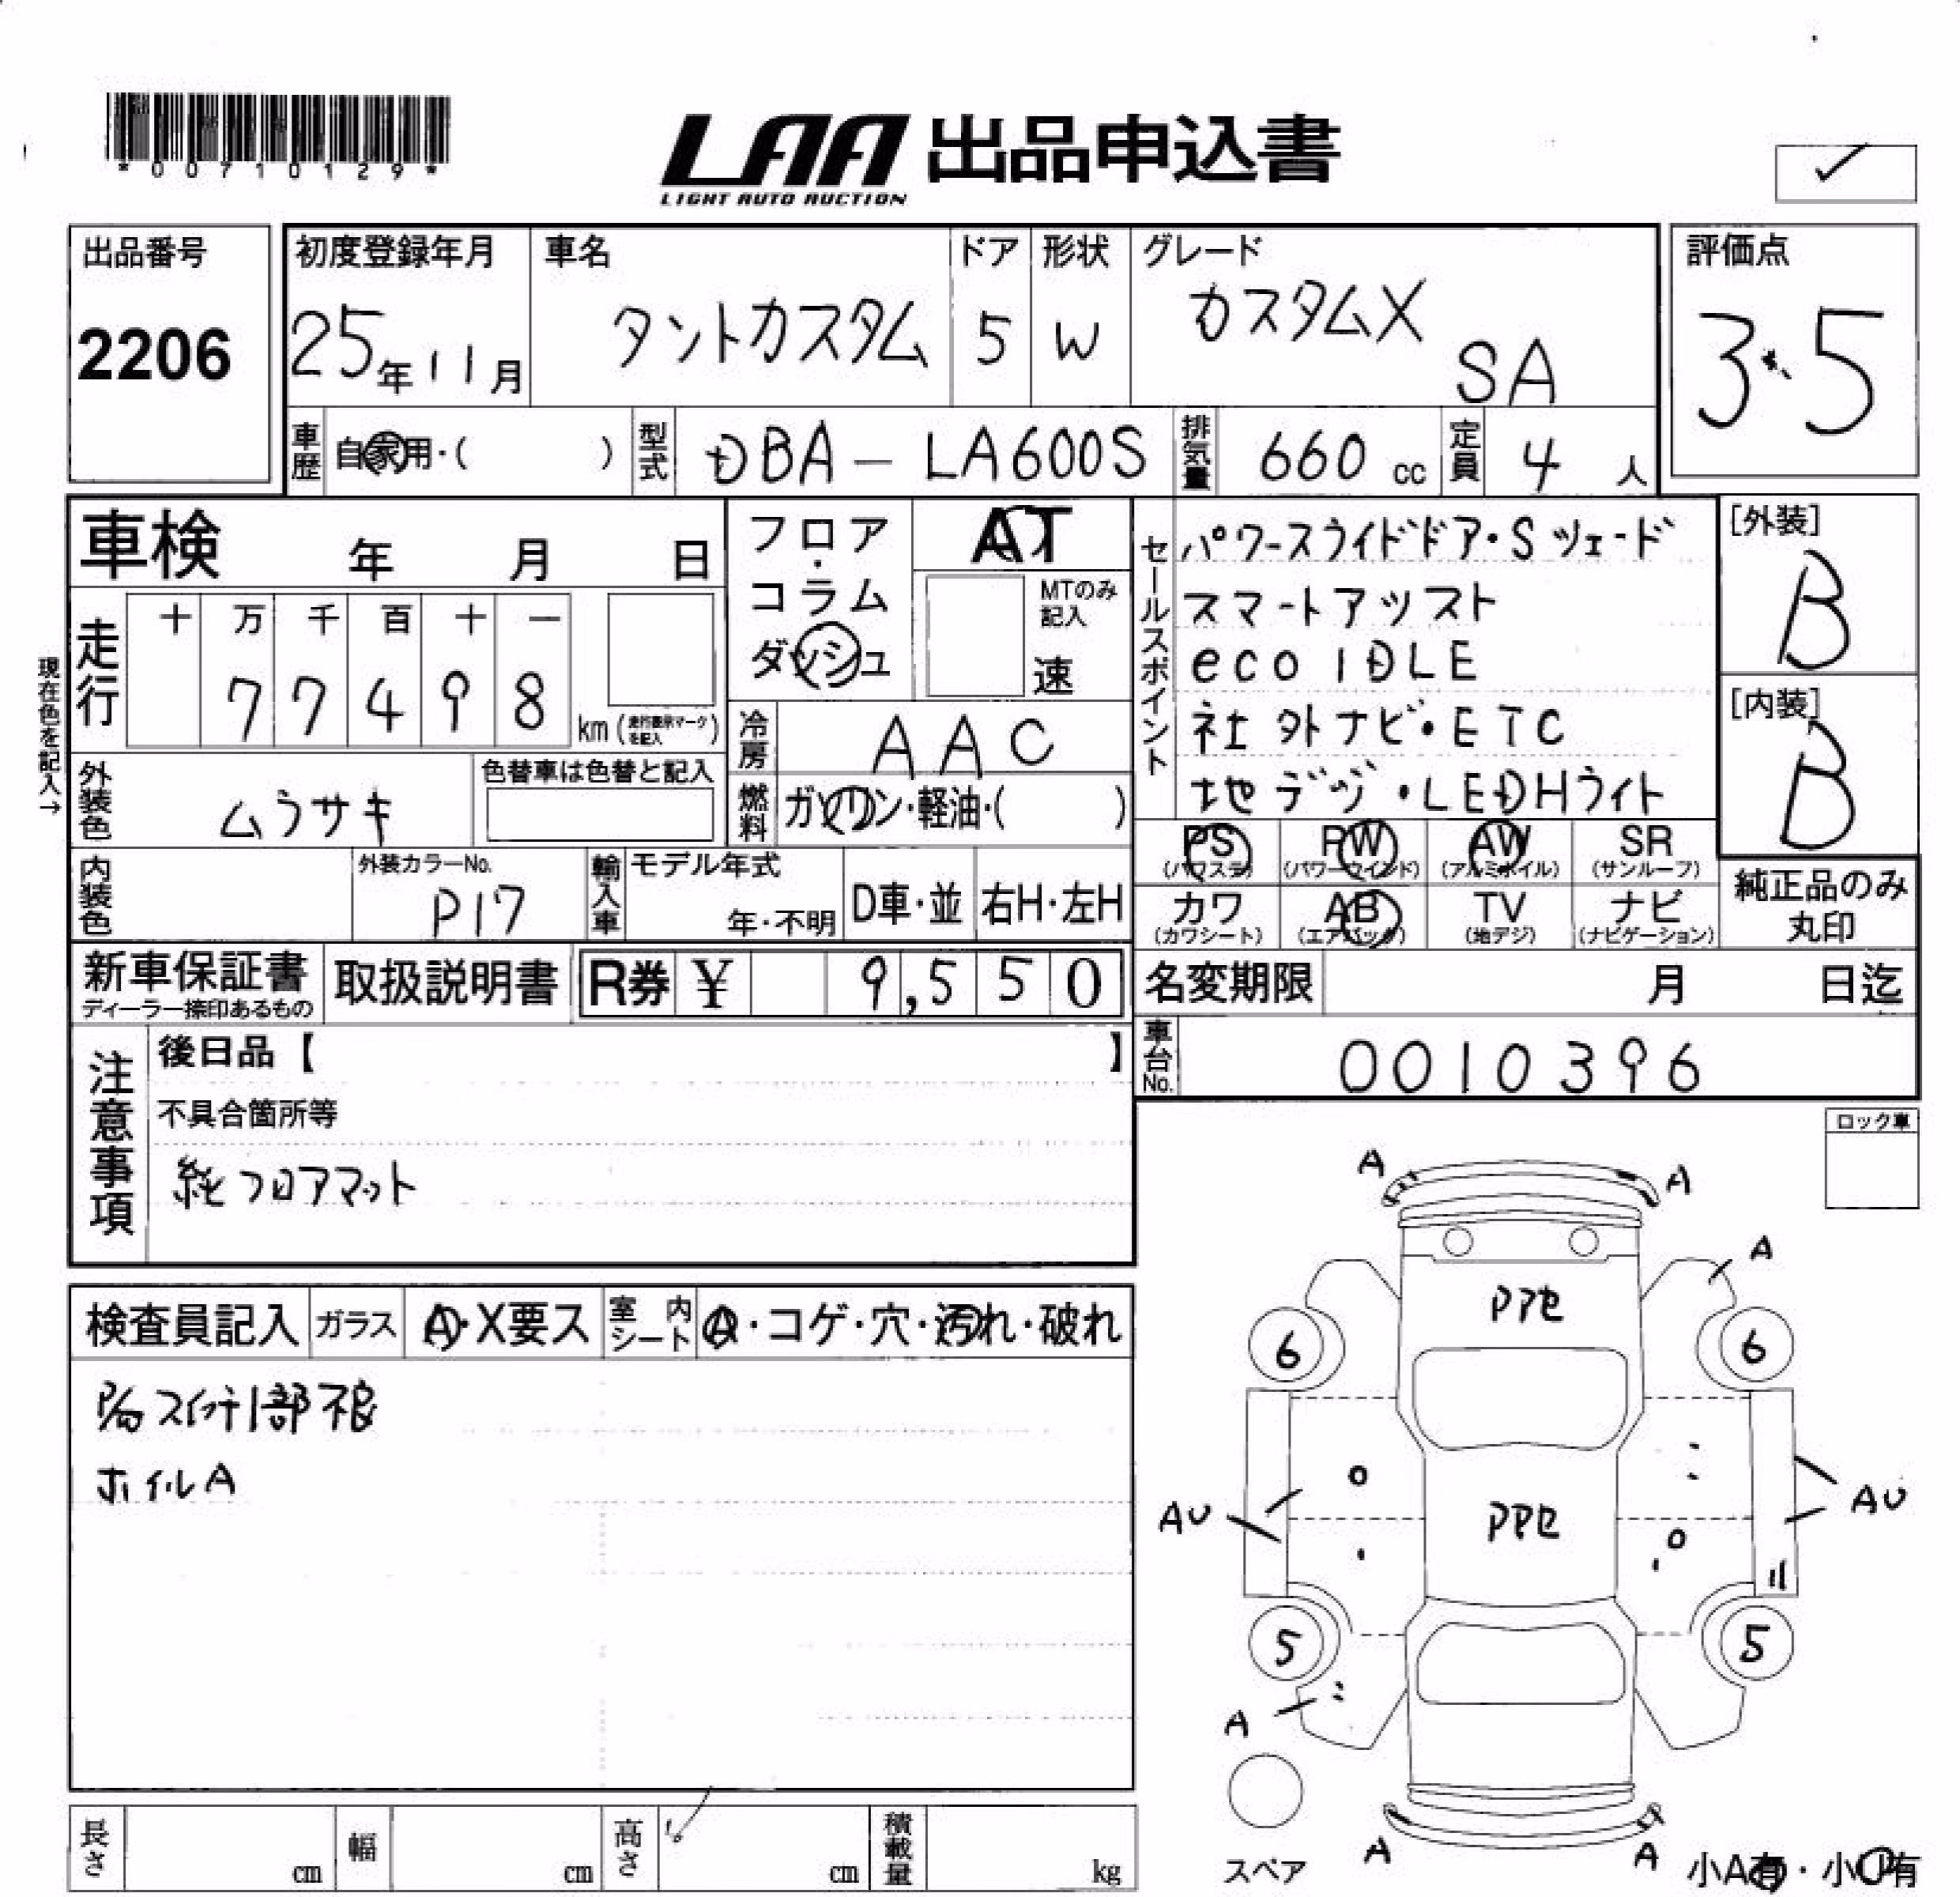 *00710129*
LAA 出品申込書
LIGHT AUTO AUCTION
出品番号
2206
初度登録年月
25年11月
車名
タントカスタム
ドア
5
形状
W
グレード
カスタムX
SA
評価点
3.5
車歴
自家用・( )
型式
DBA-LA600S
排気量
660 cc
定員
4 人
車検 年 月 日
フロア・コラム
ダッシュ
AT
MTのみ記入
速
セールスポイント
パワースライドドア・Sツェード
スマートアッスト
eco IDLE
社外ナビ・ETC
地デジ・LEDHライト
[外装]
B
[内装]
B
現在色を記入→
走行
十 万 千 百 十 一
77498
km (走行表示マークを記入)
冷房
AAC
外装色
ムラサキ
色替車は色替と記入
燃料
ガソリン・軽油・( )
PS
(パワステ)
PW
(パワーウインド)
AW
(アルミホイル)
SR
(サンルーフ)
カワ
(カワシート)
AB
(エアバック)
TV
(地デジ)
ナビ
(ナビゲーション)
純正品のみ
丸印
内装色
外装カラーNo.
P17
輸入車
モデル年式
年・不明
D車・並
右H・左H
新車保証書
ディーラー捺印あるもの
取扱説明書
R券 ¥ 9,550
名変期限 月 日迄
車台No.
0010396
注意事項
後日品【 】
不具合箇所等
純フロアマット
ロック車
検査員記入
ガラス
A・X要ス
室内シート
A・コゲ・穴・汚れ・破れ
スイッチ1部不良
ホイルA
A
A
A
PPセ
6
6
AU
PPセ
AU
5
5
A
スペア
A
A
小A有・小U有
長さ cm
幅 cm
高さ cm
積載量 kg